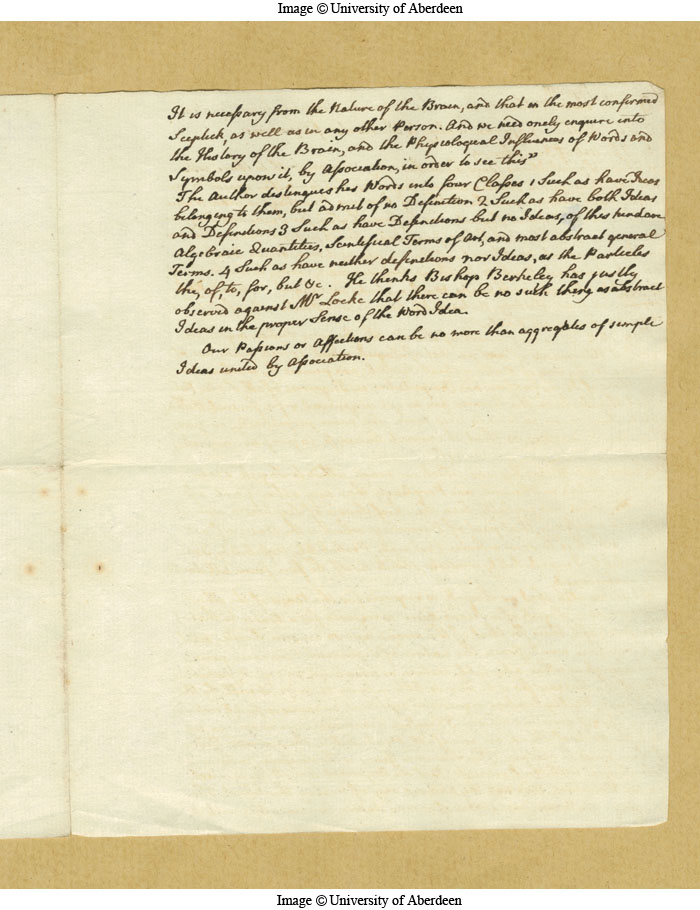 Image © University of Aberdeen
It is necessary from the Nature of the Brain, and that in the most confirmed
Sceptick, as well as in any other Person. And we need onely enquire into
the History of the Brain, and the Physiological Influences of Words and
Symbols upon it, by Association, in order to see this"
The Author distinguishes Words into four Classes 1 Such as have Ideas
belonging to them, but admit of no Definition 2 Such as have both Ideas
and Definitions 3 Such as have Definitions but no Ideas, of this kind are
Algebraic Quantities, Scientifical Terms of Art, and most abstract general
Terms. 4 Such as have neither definitions nor Ideas, as the Particles
the, of, to, for, but &c. He thinks Bishop Berkeley has justly
observed against Mr Locke that there can be no such thing as abstract
Ideas in the proper Sense of the Word Idea.
Our Passions or Affections can be no more than aggregates of simple
Ideas united by Association.
Image © University of Aberdeen